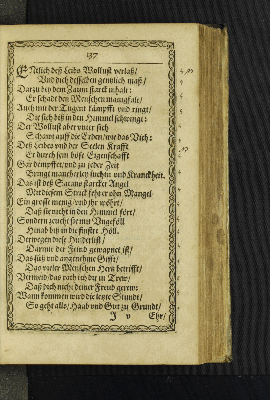 137
Entlich deß Leibs Wollust verlaß/
Und dich desselben gentzlich maß/
Darzu bey dem Zaum starck inhalt:
Er schadt den Menschen manigfalt/
Auch mit der Tugent kämpfft und ringt/
Die sich biß in den Himmel schwingt:
Der Wollust aber unter sich
Schawt auff die Erden/wie das Vieh:
Deß Leibes und der Seelen Krafft
Er durch sein böse Eigenschafft
Gar dempffet/und zu jeder Zeit
Bringt mancherley suchten und Kranckheit.
Das ist deß Satans starcker Angel
Mit diesem Strick fehrt er ohn Mangel
Ein grosse meng/und ihr wöhrt/
Daß sie nicht in den Himmel fört/
Sondern zeucht sie mit Ungeföll
Hinab biß in die finster Höll.
Derwegen diese Hinderlist/
Darmit der Feind gewapnet ist/
Das süß und angenehme Gifft/
Das vieler Menschen Hertz betrifft/
Vermeid/das rath ich dir in Trew/
Daß dich nicht deiner Freud gerew:
Wann kommen wird die letzte Stundt/
So geht alls/Haab und Gut zu Grundt/
J v Ehr/